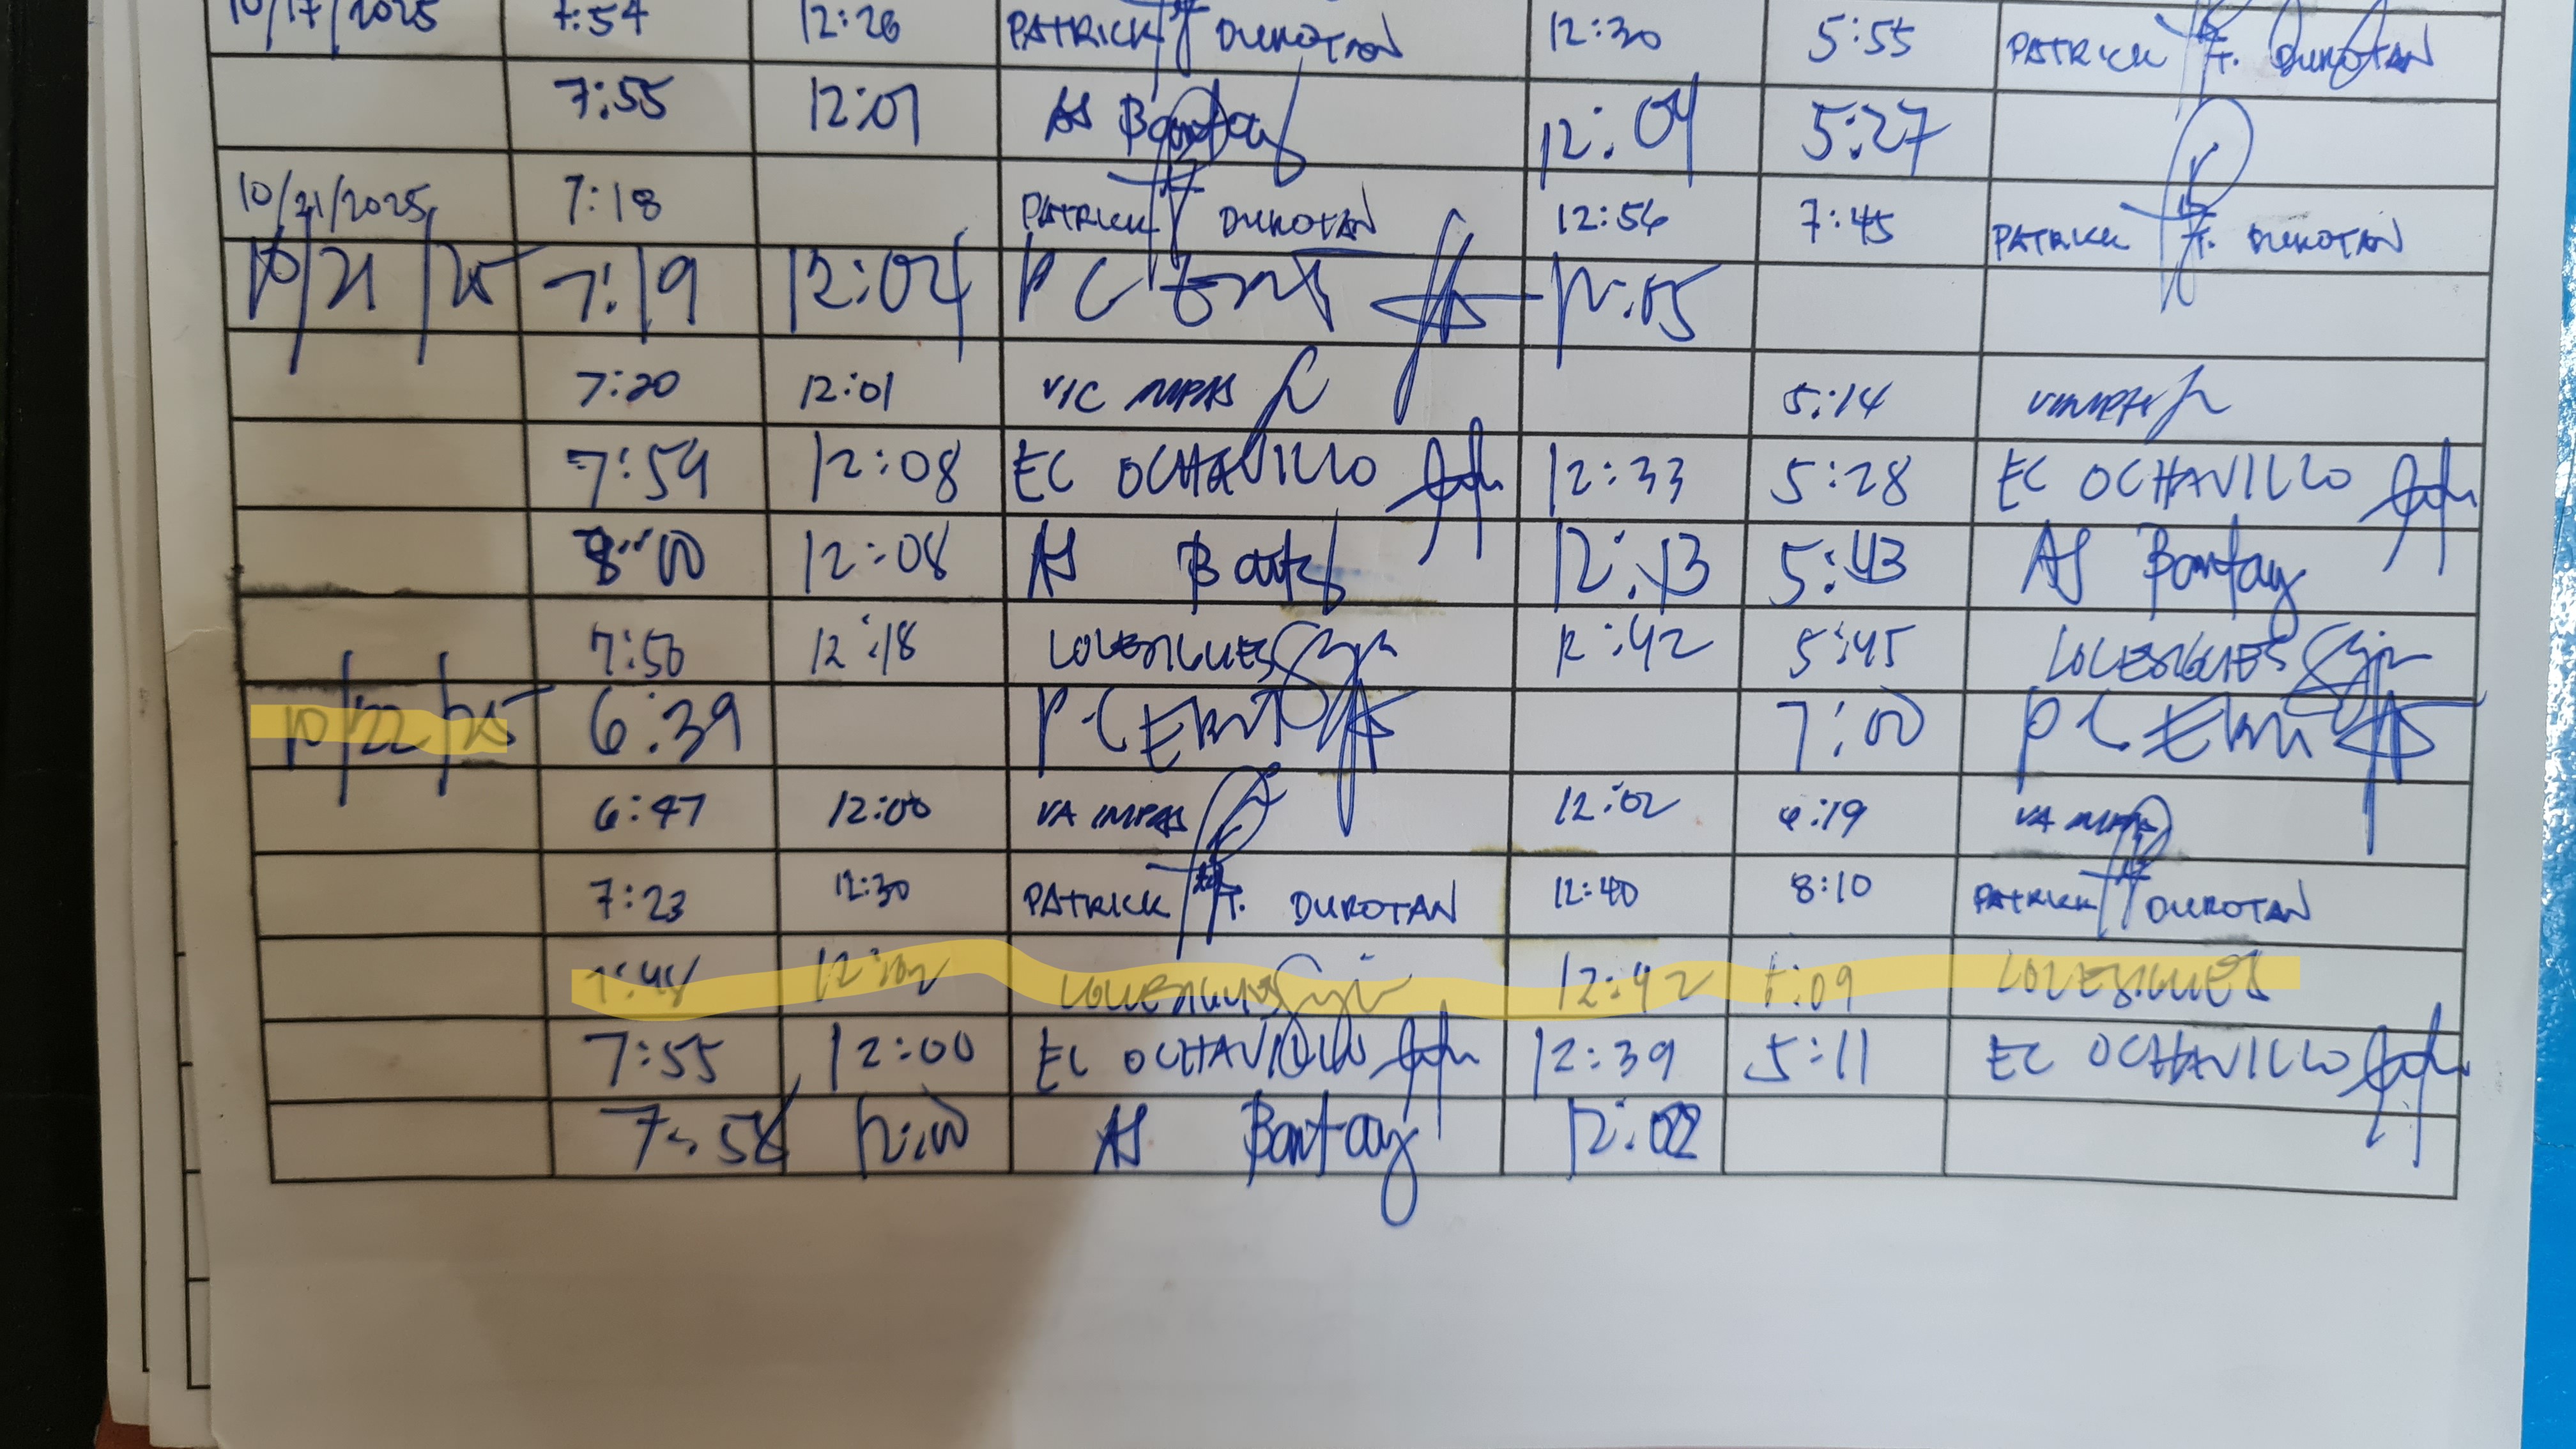 10/17/2025 7:54 12:26 PATRICK DUROTAN 12:30 5:55 PATRICK T. DUROTAN
7:55 12:01 AS Bantay 12:04 5:27
10/21/2025 7:18 PATRICK DUROTAN 12:56 7:45 PATRICK T. DUROTAN
10/21/25 7:19 12:04 PC 12:05
7:20 12:01 VIC IMPAS 5:14
7:59 12:08 EC OCHAVILLO 12:33 5:28 EC OCHAVILLO
8:00 12:08 AS 12:13 5:43 AS Bantay
7:50 12:18 12:42 5:45
10/22/25 6:39 7:00
6:47 12:00 VA IMPAS 12:02 6:19 VA
7:23 12:30 PATRICK T. DUROTAN 12:40 8:10 PATRICK DUROTAN
7:48 12:02 12:42 5:09
7:55 12:00 EC OCHAVILLO 12:39 5:11 EC OCHAVILLO
7:58 12:00 AS Bantay 12:02